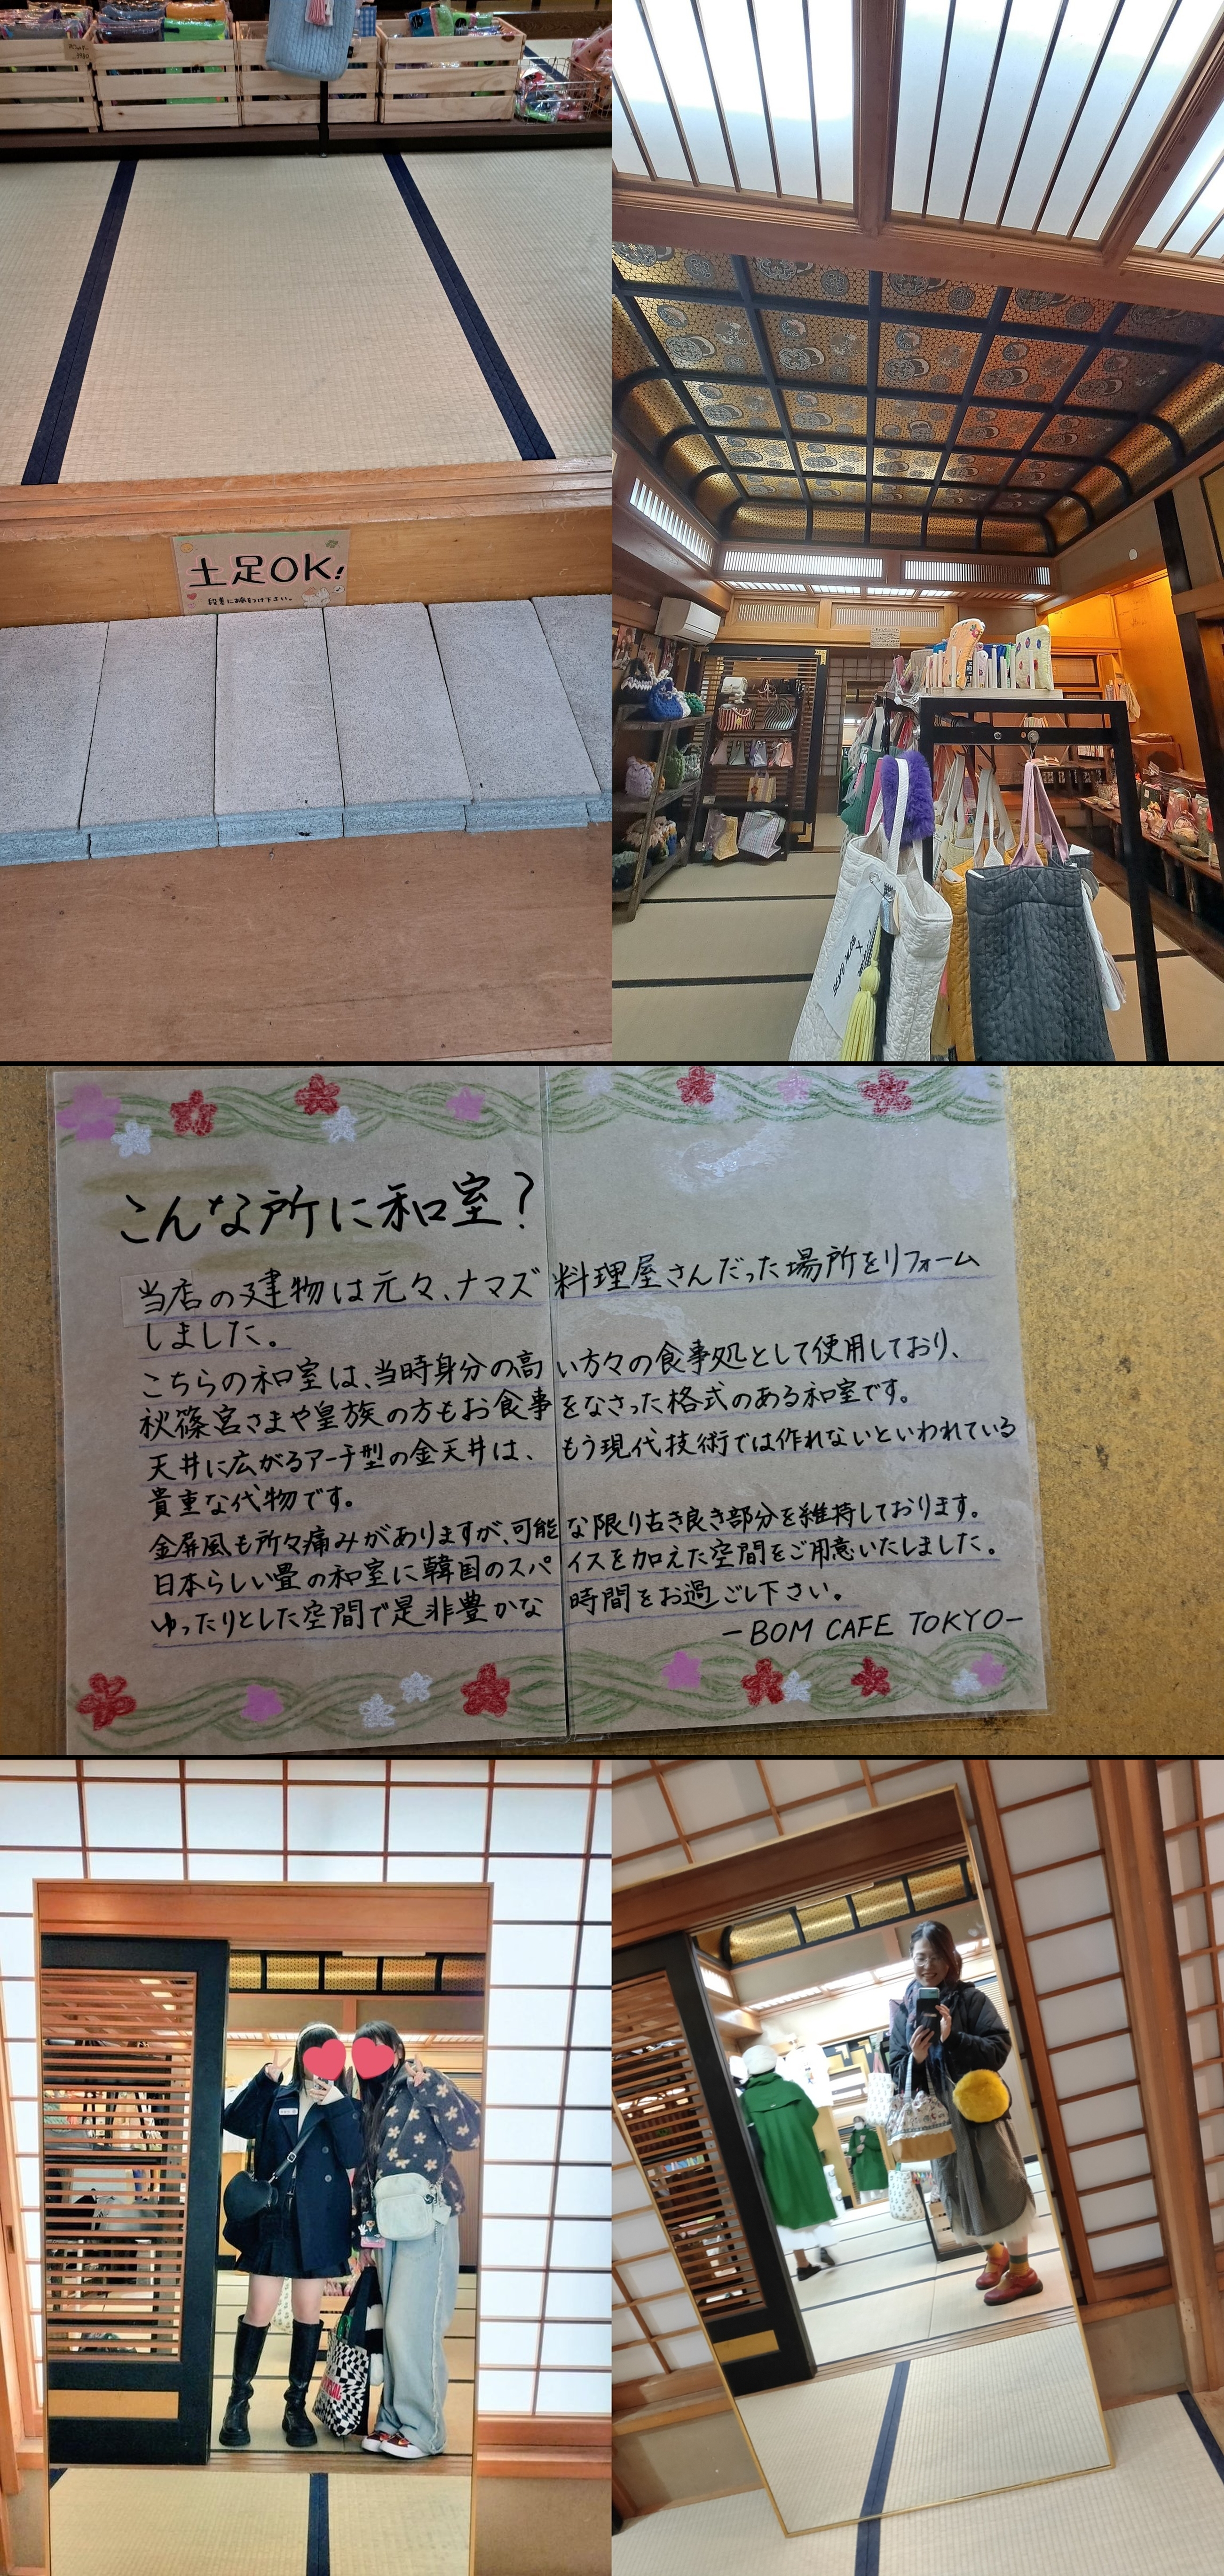 土足OK!
段差にお気をつけ下さい。
こんな所に和室?
当店の建物は元々、ナマズ料理屋さんだった場所をリフォーム
しました。
こちらの和室は、当時身分の高い方々の食事処として使用しており、
秋篠宮さまや皇族の方もお食事をなさった格式のある和室です。
天井に広がるアーチ型の金天井は、もう現代技術では作れないといわれている
貴重な代物です。
金屏風も所々痛みがありますが、可能な限り古き良き部分を維持しております。
日本らしい畳の和室に韓国のスパイスを加えた空間をご用意いたしました。
ゆったりとした空間で是非豊かな時間をお過ごし下さい。
-BOM CAFE TOKYO-